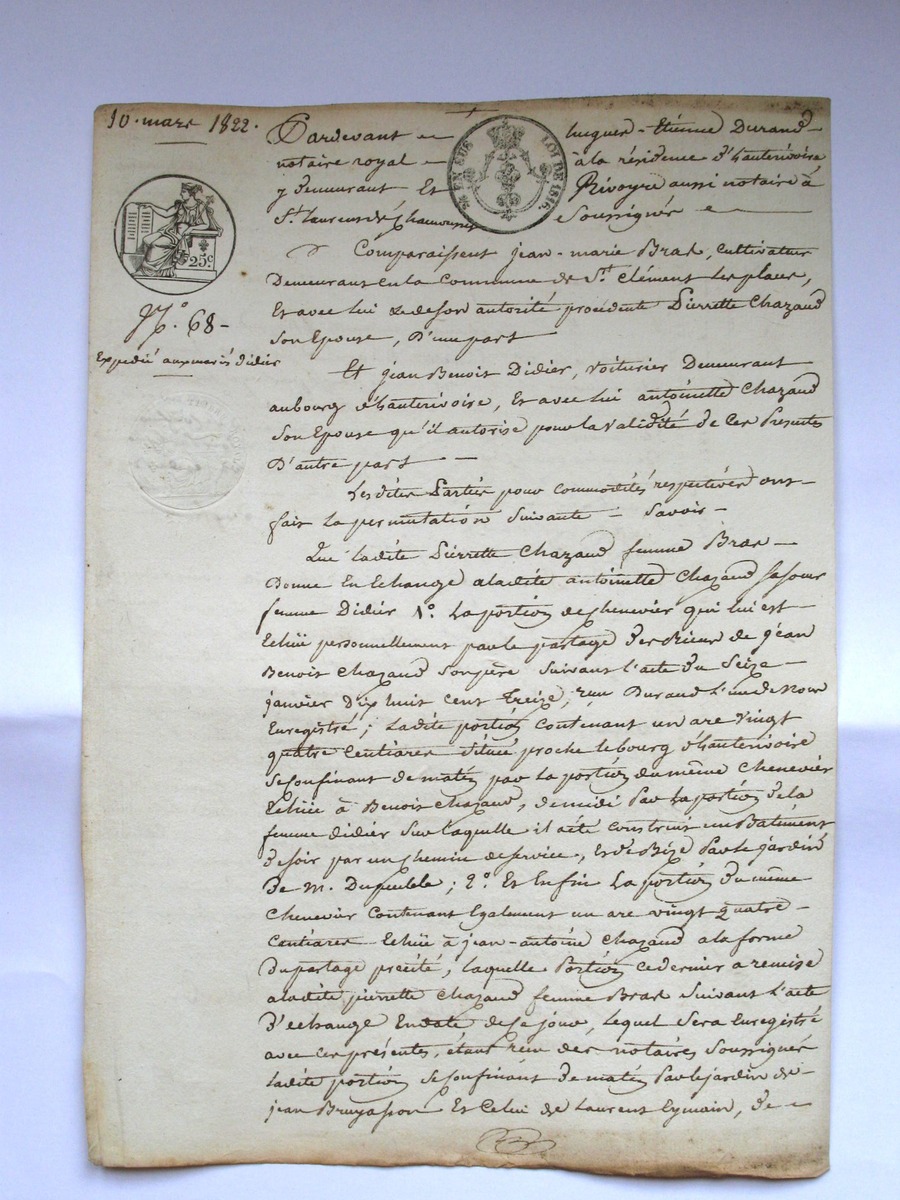 10. mars 1822.
Pardevant hugues-Etienne Durand
notaire royal à la résidence d'hauterivoire
y demeurant Et Rivoyre aussi notaire à
St. Laurent de Chamousset Soussignés
EN SUS LOI DE 1816.
25 c.
N.o 68
Expedié aux mariés didier
Comparaissent jean-marie Bras, cultivateur
Demeurant en la Commune de St. Clément les places,
Et avec lui & de son autorité procédente Pierrette Chazaud
Son Epouse, D'une part
Et jean Benoit Didier, voiturier Demeurant
au bourg d'hauterivoire, Et avec lui antoinette Chazaud
Son Epouse qu'il autorise pour la validité de Ces Presentes
D'autre part
Lesdites Parties pour commodités respectives ont
fait La permutation Suivante Savoir
Que Ladite Pierrette Chazaud femme Bras
Donne En Echange a ladite antoinette Chazaud Sa Sœur
femme Didier 1.o La portion de chenevier qui lui est
Echüe personnellement par le partage des Biens de jean
Benoit Chazaud Son père Suivant l'acte du Seize
janvier Dix huit cent treize, reçu Durand L'un de Nous
Enregistré; Ladite portion contenant un are vingt
quatre Centiares située proche le bourg d'hauterivoire
Se Confinant de matin par La portion du même Chenevier
Echüe à Benoit Chazaud, de midi Par La portion de la
femme didier Sur laquelle il a été construit un Bâtiment
de soir par un chemin de service, Et de Bize Par le jardin
De M. Dupeuble; 2.o Et Enfin La portion du même
Chenevier Contenant Egalement un are vingt quatre
Centiares Echüe à jean-antoine Chazaud a la forme
Du partage précité, laquelle Portion ce dernier a remise
a ladite pierrette Chazaud femme Bras Suivant L'acte
D'echange En date de Ce jour, lequel Sera Enregistré
avec Ces présentes, étant reçu des notaires Soussignés
Ladite portion Se Confinant De matin Par le jardin de
jean Bruyas Et Celui de Laurent Eymain, de